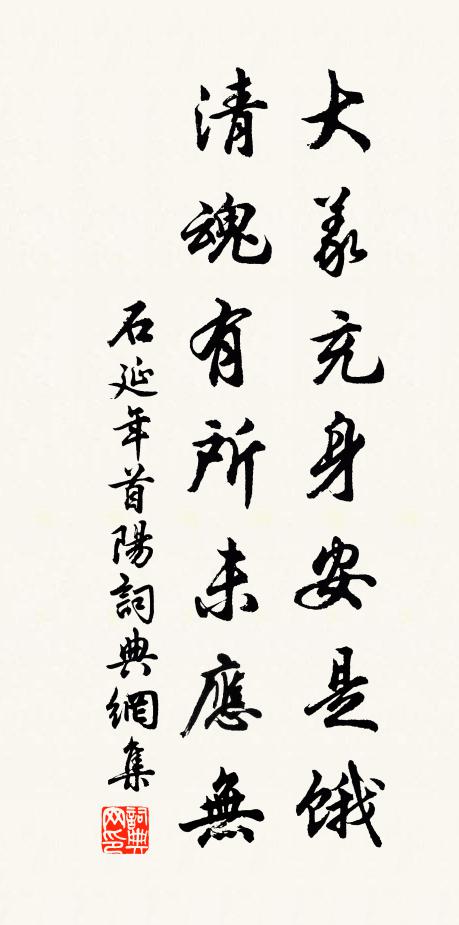 大義充身安是餓
清魂有所未應無
石延年首陽詞典網集
詞典网印